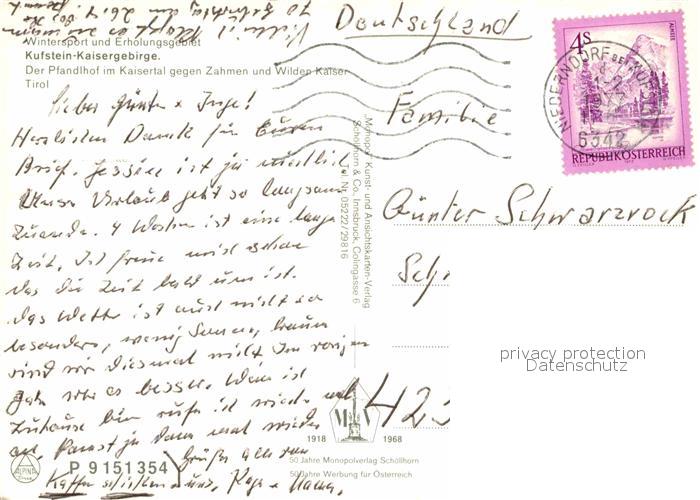 Deutschland
Wintersport und Erholungsgebiet
Kufstein-Kaisergebirge.
Der Pfandlhof im Kaisertal gegen Zahmen und Wilden Kaiser
Tirol
Lieber Günter + Inge!
Herzlichen Dank für Euren
Brief. Jessica ist ja niedlich.
Unser Urlaub geht so langsam
zuende. 4 Wochen ist eine lange
Zeit. Ich freue mich schon
das die Zeit bald um ist.
Das Wetter ist auch nicht so
besonders, wenig Sonne, braun
sind wir diesmal nicht. Im vorigen
Jahr war es besser. Wenn ich
zuhause bin rufe ich wieder mal
an. Kannst ja dann mal wieder
Kaffee
Grüße
"Monopol" Kunst- und Ansichtskarten-Verlag
Schöllhorn & Co., Innsbruck, Colingasse 6
Tel. Nr. 05222/29816
Familie
Günter Schwarzrock
Sch
42
4S
ALMSEE
REPUBLIK ÖSTERREICH
NIEDERNDORF BEI KUFSTEIN
6342
privacy protection
Datenschutz
M V
1918 1968
50 Jahre Monopolverlag Schöllhorn
50 Jahre Werbung für Österreich
ALPINA
P 9151354